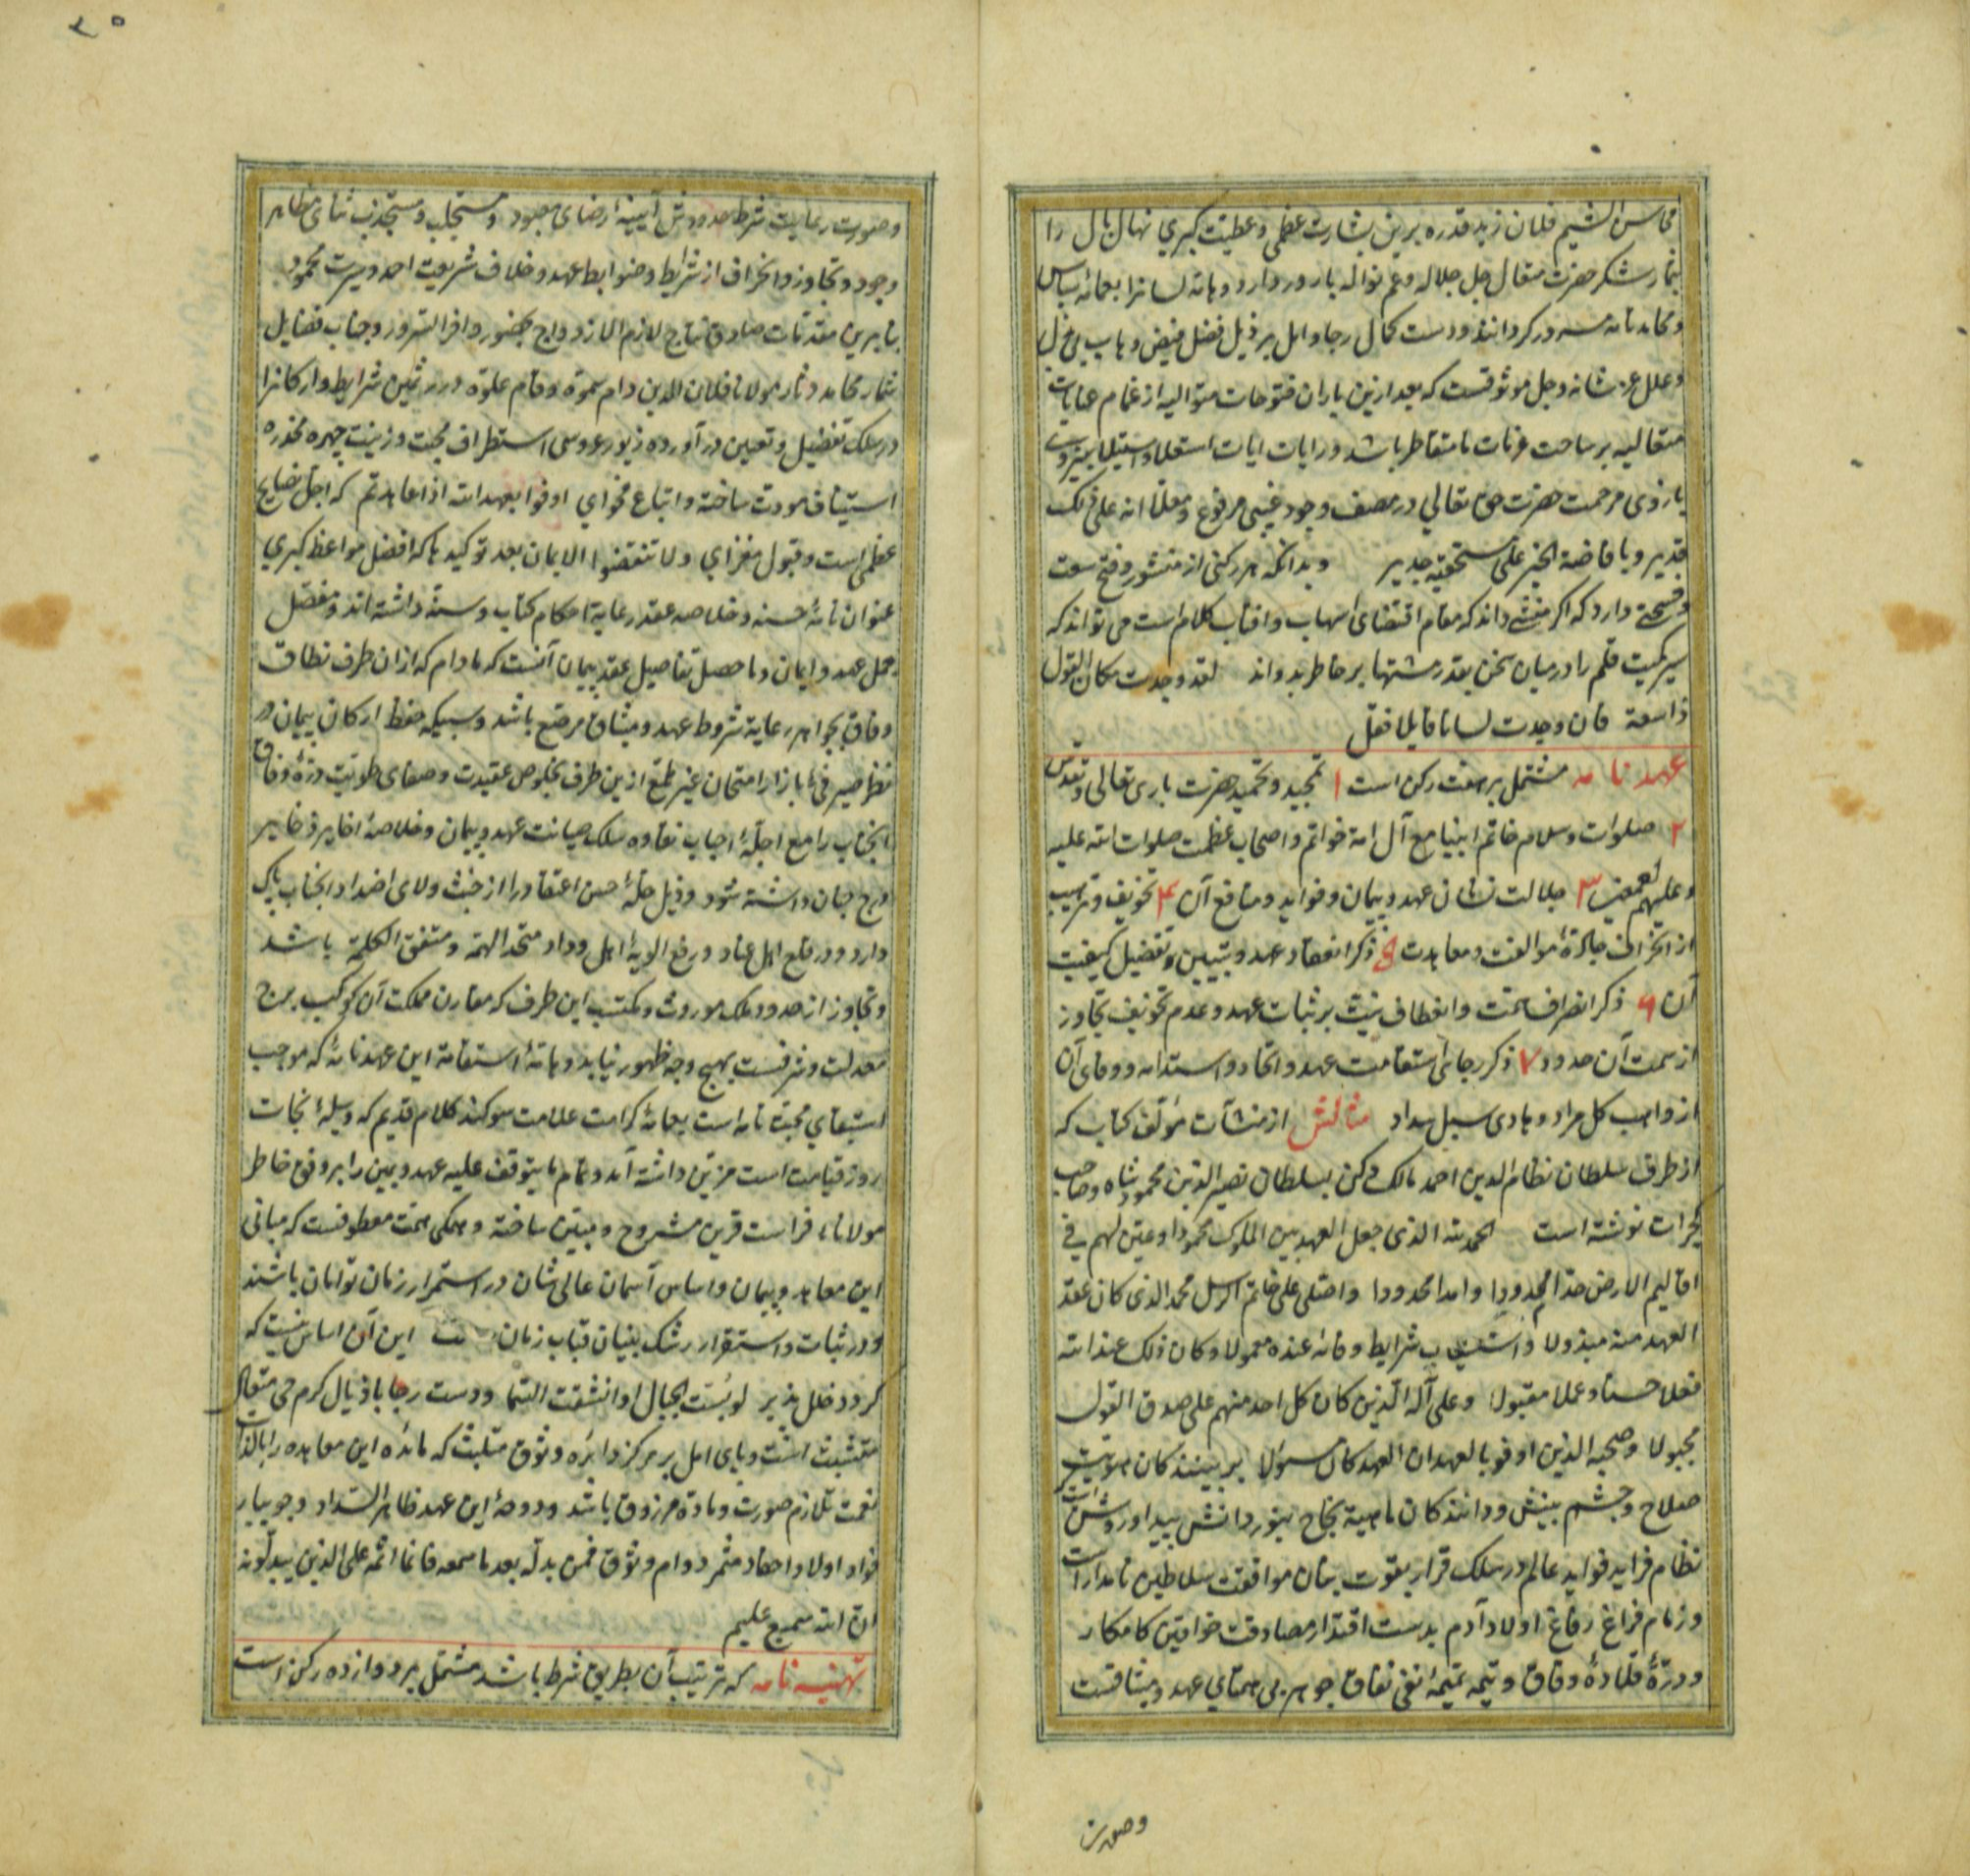 محاسن الشیم فلان زید قدره برین بشارت عظمی و عطیت کبری نهال بال را
بثمار شکر حضرت متعال جل جلاله و عم نواله بارور دارد و هاته لسانرا بعمائه سپاس
و محامد نامه سه ور کردانند و دست کمال رجا و امل بر ذیل فضل فیض وهاب بی بخل
و علل عز شانه و جل موثوقست که بعد ازین باران فتوحات متوالیه از غمام عنایات
متعالیه بر ساحت عرفات نامتقاطر باشد و رایات ایات استعلا و استیلا
بازوی مرحمت حضرت حق تعالی در مصف وجود غیبی مرفوع و معلا انه علی ذلک
قدیر و بافاضة الخیر علی مستحقیه جدیر و بدانکه هر رکنی از منشور فتح سعت
و فسحتی دارد که اکر منشی داند که مقام اقتضای اسهاب و اطناب کلام است می تواند که
سیر کمیت قلم را در میان سخن بقدر مشتهای خاطر بدواند لقد وجدت مکان القول
ذا سعة فان وجدت لسانا قایلا فقل
عهد نامه مشتمل بر هفت رکن است ۱ تمجید و تحمید حضرت باری تعالی و تقدس
۲ صلوات و سلام خاتم انبیا مع آل امة خواتم و اصحاب عظمت صلوات الله علیه
و علیهم اجمعین ۳ جلالت شان عهد و پیمان و فواید و منافع آن ۴ تخویف و ترهیب
از انحراف جادهٔ موالفت و معاهدت ۵ ذکر انعقاد عهد و تبیین و تفضیل کیفیت
آن ۶ ذکر انصراف همت و انعطاف نیت بر ثبات عهد و عدم تخویف تجاوز
از سمت آن حدود ۷ ذکر رجای استقامت عهد و اتحاد و استدامه و وفای آن
از واهب کل مراد و هادی سبیل سداد مثالش از منشآت مؤلف کتاب که
از طرف سلطان نظام الدین احمد مالک دکن بسلطان نصیر الدین محمود شاه صاحب
کجرات نوشته است الحمد لله الذی جعل العهد بین الملوک محمودا و عین لهم فی
اقالیم الارض حدا مجدودا و امدا محدودا و اصلی علی خاتم الرسل محمد الذی کان عقد
العهد منه مبذولا و استیعاب شرایط وفائه عنده معمولا و کان ذلک عند الله
فعلا حسنا و عملا مقبولا و علی آله الذین کان کل احد منهم علی صدق القول
مجبولا و صحبه الذین اوفوا بالعهد ان العهد کان مسؤلا بر بینندکان هویت
صلاح و چشم بینش و دانندکان ماهیة نجاح بنور دانش پیدا و روشن است
نظام فراید فواید عالم در سلک قرار بقوت بنان موافقت سلاطین نامدار است
و زمام فراغ رفاغ اولاد آدم بدست اقتدار مصادقت خواقین کامکار
و درّهٔ قلادهٔ وفاق و تتمه تمیمهٔ نفی نفاق جوهر بی همتای عهد و میثاقست
وصورت
وصورت رعایت شرط حدودش آیینهٔ رضای معبود و مستجلب و مستجذب ثنای مظاهر
وجود و تجاوز و انحراف از شرایط و ضوابط عهد و خلاف شریعت احمد و سیرت محمود
بنابرین مقدمات صادق نتایج لازم الازدواج بحضور وافر السرور و جناب فضایل
شمار محامد دثار مولانا فلان الدین دام سموه و قام علوه در ر ثمین شرایط و ارکانرا
در سلک تفضیل و تعیین درآورده زیور عروس استطراف محبت و زینت چهره مخدره
استیناف مودت ساخته و اتباع فحوای اوفوا بعهد الله اذا عاهدتم که اجل نصایح
عظمی است و قبول مغزای و لا تنقضوا الایمان بعد توکیدها که افضل مواعظ کبری
عنوان نامهٔ حسنه و خلاصه عقد رعایة احکام کتاب و سنة داشته اند و مفصل
مجمل عهد و ایمان و ماحصل تفاصیل عقد پیمان آنست که مادام که ازان طرف نطاق
وفاق بجواهر رعایة شروط عهد و میثاق مرصع باشد و سبیکه حفظ ارکان پیمان در
نظر صیرفی بازار امتحان غیر طمع ازین طرف بخلوص عقیدت و صفای طویت درهٔ وفاق
انجناب را مع اجلهٔ احباب نقاوه سلک صیانت عهد و پیمان و خلاصهٔ اخایر ذخایر
درج جنان داشته شود و ذیل حلهٔ حسن اعتقاد را از خبث ولای اضداد انجناب پاک
دارد و در قلع اهل عناد و رفع الویهٔ اهل وداد متحد الهمة و متفق الکلمة باشد
و تجاوز از حدود ملک موروث و مکتسب این طرف که مقارن مملکت آن کوکب برج
معدلت و شرفست بهیچ وجه ظهور نیابد و هاتهٔ استقامة این عهد نامهٔ که موجب
استبقای محبت نامه است بعمائهٔ کرامت علامت سوکند کلام قدیم که وسیلهٔ نجات
روز قیامت است مزین داشته آمد و تمام ما یتوقف علیه عهد و یمین را بر وفق خاطر
مولانای فراست قرین مشروح و مبین ساخته و همکی همت معطوفست که مبانی
این معاهد و پیمان و اساس آسمان عالی شان در استمرار زمان توامان باشند
و در ثبات و استقرار رشک بنیان قباب زمان این آن اساس نیست که
کردد خلل پذیر لو بسّت الجبال او انشقت السما و دست رجا باذیال کرم حی متعال
متشبث است و پای امل بر مرکز دایرهٔ وثوق متلبث که مائدهٔ این معاهده را بالذات
نعمت تلازم صورت و ماده مرزوق باشد و دوحهٔ این عهد ظاهر السداد و جویبار
فواد اولاد و احفاد مثمر دوام وثوق فمن بدله بعد ما سمعه فانما اثمه علی الذین یبدلونه
ان الله سمیع علیم
تهنیه نامه که ترتیب آن بطریق شرط باشد مشتمل بر دوازده رکن است